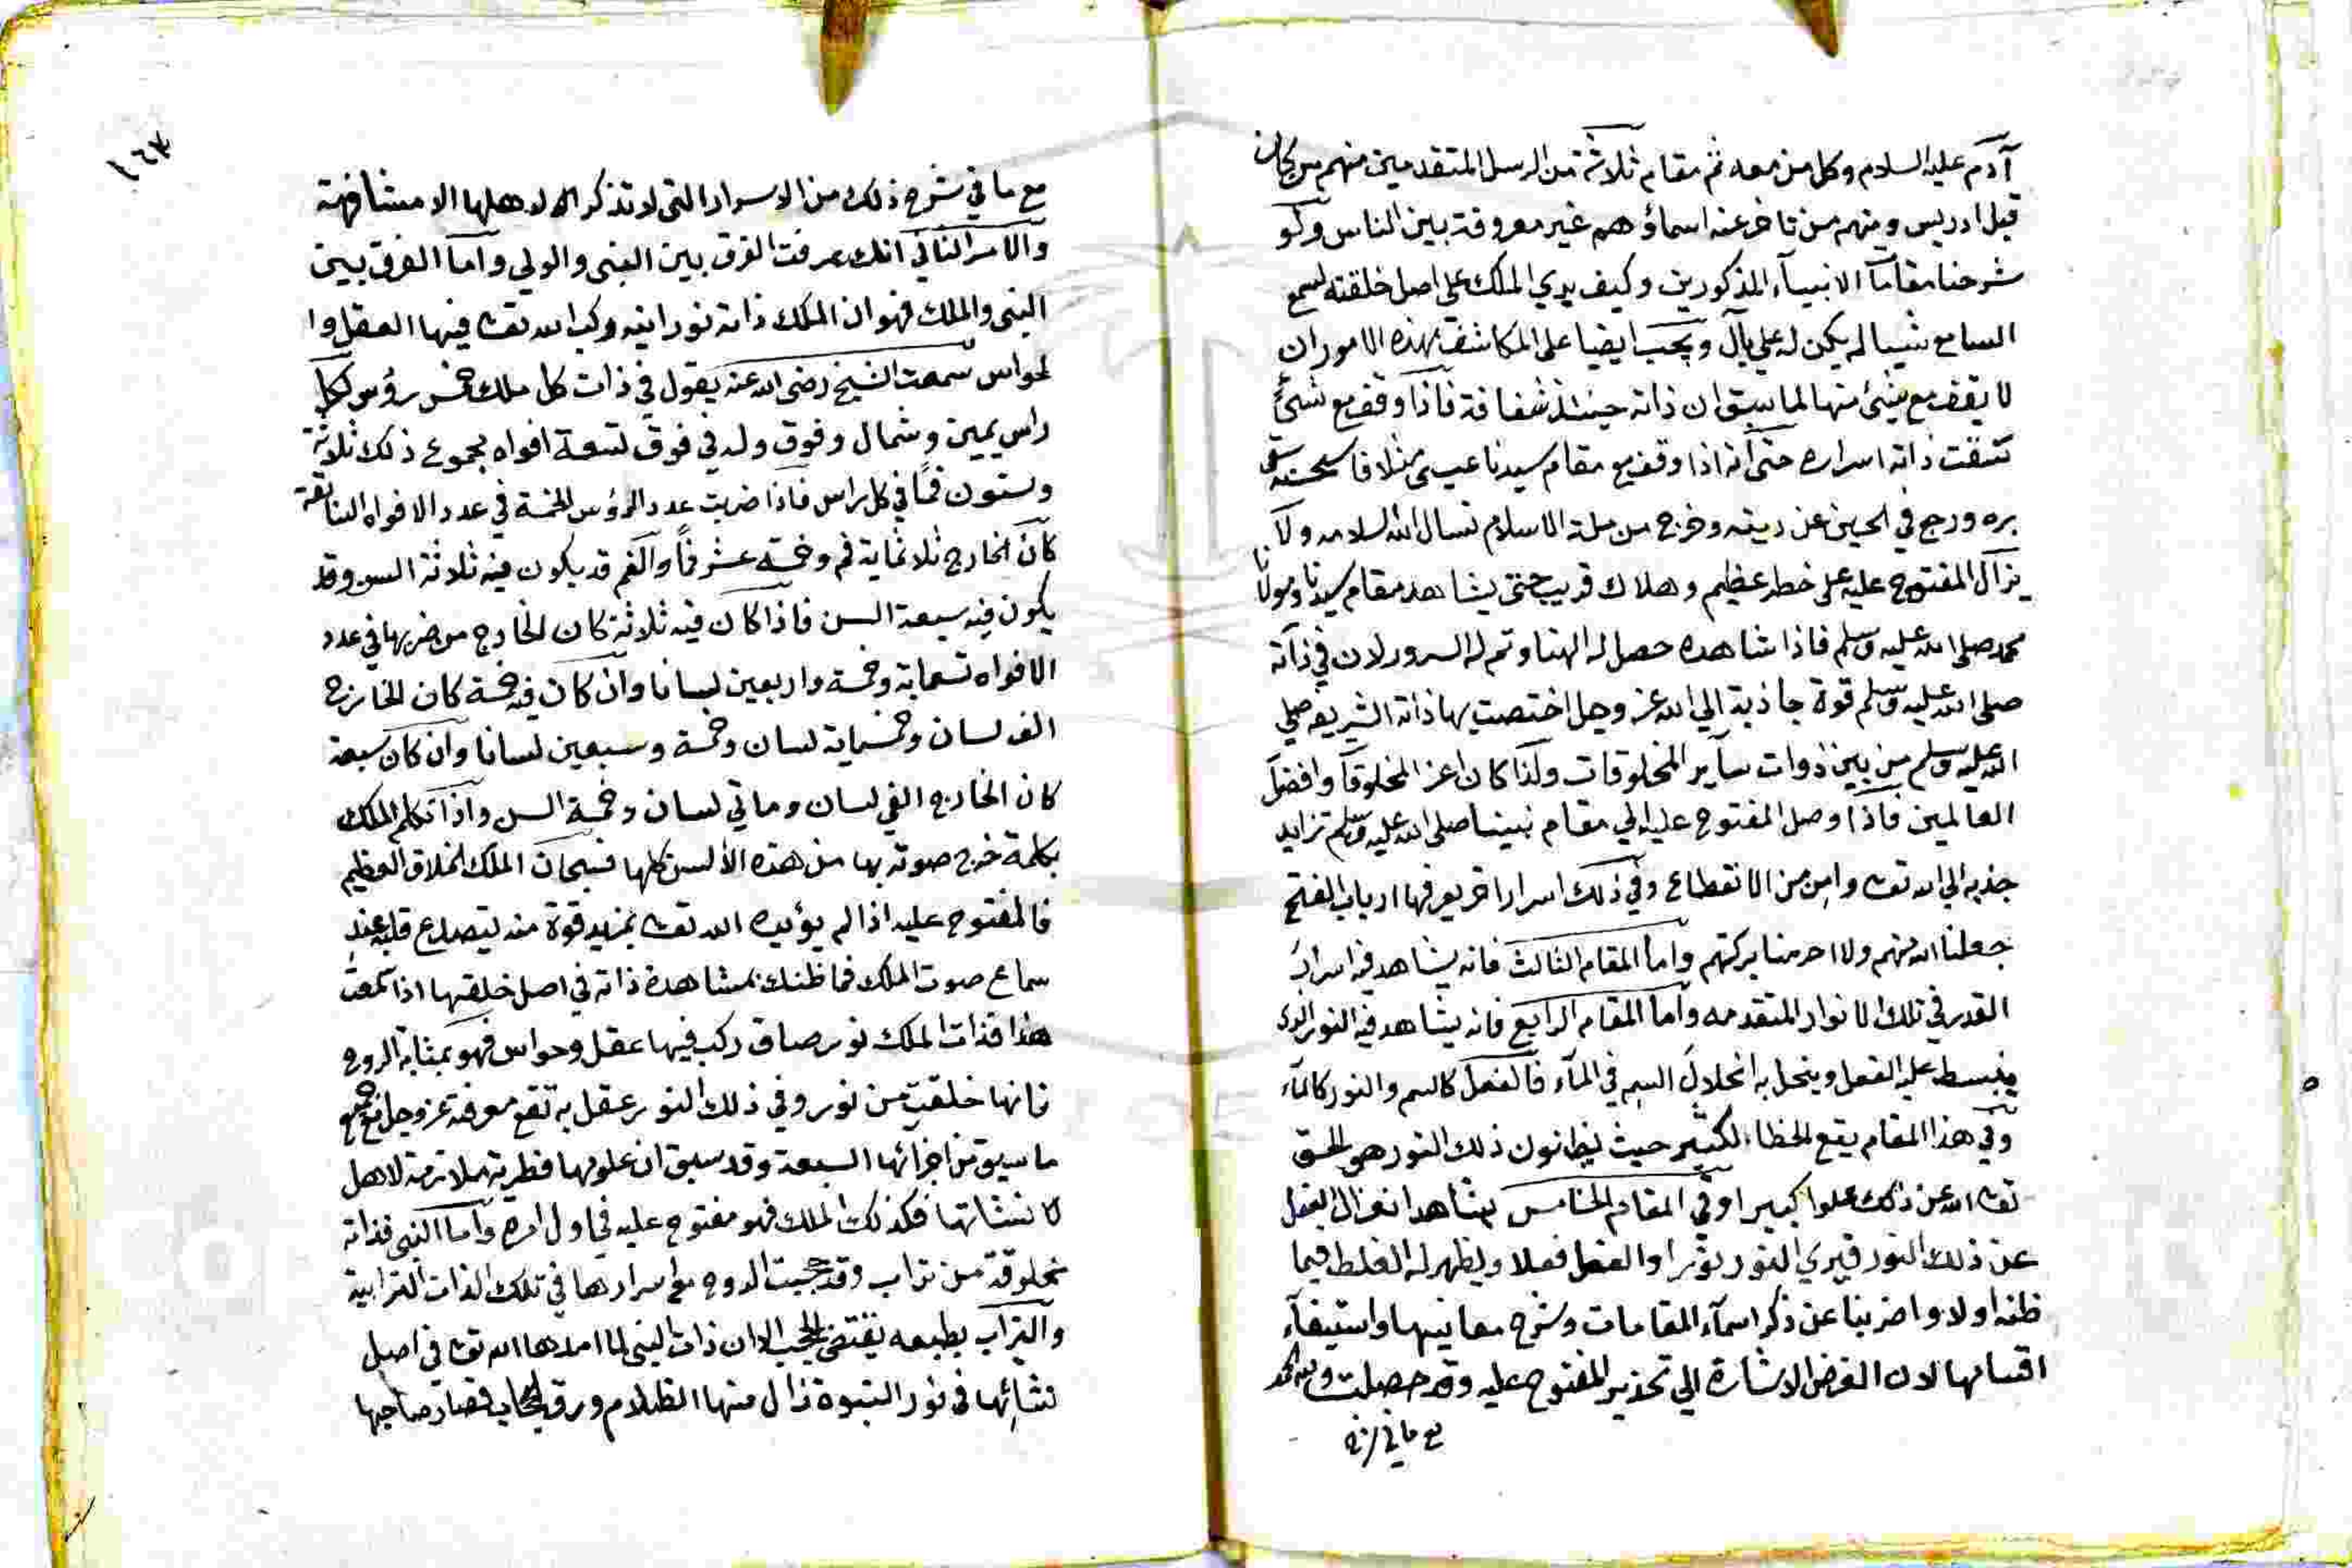 آدم عليه السلام وكل من معه ثم مقام ثلاثة من الرسل المتقدمين منهم من كان
قبل ادريس ومنهم من تاخر عنه اسماؤهم غير معروفة بين الناس ولو
شرحنا مقامآ الانبيآء المذكورين وكيف يري الملك علي اصل خلقته لسمع
السامع شيئا لم يكن له علي بال ويجب ايضا على المكاشف بهذه الامور ان
لا يقف مع شئ منها لما سبق ان ذاته حينئذ شفافة فاذا وقف مع شئ
ذاته اسراره حتى انه اذا وقف مع مقام سيدنا عيسى مثلا فاستحسنه سقي
بره ورجع في الحين عن دينه وخرج من ملة الاسلام نسال الله السلامه ولا
يزال المفتوح عليه على خطر عظيم وهلاك قريب حتى يشاهد مقام سيدنا ومولانا
محمد صلى الله عليه وسلم فاذا شاهده حصل له الهنا وتم له السرور لان في ذاته
صلى الله عليه وسلم قوة جاذبة الي الله عز وجل اختصت بها ذاته الشريفه صلى
الله عليه وسلم من بين ذوات سآير المخلوقات ولذا كان اعز المخلوقآ وافضل
العالمين فاذا وصل المفتوح عليه الي مقام نبينا صلى الله عليه وسلم تزايد
جذبه الي الله تعا وامن من الانقطاع وفي ذلك اسرار اخر يعرفها ارباب الفتح
جعلنا الله منهم ولا احرمنا بركتهم واما المقام الثالث فانه يشاهد فيه اسرار
القدر في تلك الانوار المتقدمه واما المقام الرابع فانه يشاهد فيه النور الذى
ينبسط عليه الفعل وينحل به انحلال السم في المآء فالفعل كالسم والنور كالمآء
وفي هذا المقام يقع الخطاء لكثير حيث يظانون ذلك النور هو الحق
تعا الله عن ذلك علوا كبيرا وفي المقام الخامس يشاهد انعزال الفعل
عن ذلك النور فيري النور نورا والفعل فعلا ويظهر له الغلط فيما
ظنه اولا واضربنا عن ذكر اسمآء المقامات وشرح معانيها واستيفآء
اقسامها لان الغرض الاشارة الي تحذير المفتوح عليه وقد حصلت ولله الحمد
مع ما في
١٦٣
مع ما في شرح ذلك من الاسرار التى لا تذكر الا لاهلها الا مشافهة
والامر الثاني انك عرفت الفرق بين النبى والولي واما الفرق بين
النبى والملك فهو ان الملك ذاته نورانيه ركب الله تعا فيها العقل وا
لحواس سمعت الشيخ رضى الله عنه يقول في ذات كل ملك خمس رؤس لكل
راس يمين وشمال وفوق وله في فوق لتسعة افواه مجموع ذلك ثلاثة
وستون فمًا في كل راس فاذا ضربت عدد الرؤس الخمسة في عدد الافواه
كان الخارج ثلاثماية فم وخمسة عشر فمًا والفم قد يكون فيه ثلاثة السن وقد
يكون فيه سبعة السن فاذا كان فيه ثلاثة كان الخارج من ضربها في عدد
الافواه تسعماية وخمسة واربعين لسانا وان كان فيه خمسة كان الخارج
الف لسان وخمسماية لسان وخمسة وسبعين لسانا وان كان سبعة
كان الخارج الفي لسان وماتي لسان وخمسة السن واذا تكلم الملك
بكلمة خرج صوته بها من هذه الألسن كلها فسبحان الملك الخلاق العظيم
فالمفتوح عليه اذا لم يؤيده الله تعا بمزيد قوة منه ليتصدع قلبه عند
سماع صوت الملك فما ظنك بمشاهدة ذاته في اصل خلقتها اذا سمعت
هذا فذات الملك نور صاف ركب فيها عقل وحواس فهو بمثابة الروح
فانها خلقت من نور وفي ذلك النور عقل به تقع معرفته عز وجل مع جميع
ما سبق من اجزائها السبعة وقد سبق ان علومها فطرية ملازمة لاصل
لا نشاتها فكذلك الملك فهو مفتوح عليه في اول امره واما النبى فذاته
مخلوقة من تراب وقد حجبت الروح مع اسرارها في تلك الذات الترابية
والتراب بطبعه يقتضى الحجب الا ان ذات النبى لما امدها الله تعا في اصل
نشائها فى نور النبوة زال منها الظلام ورق الحجاب فصار صاحبها